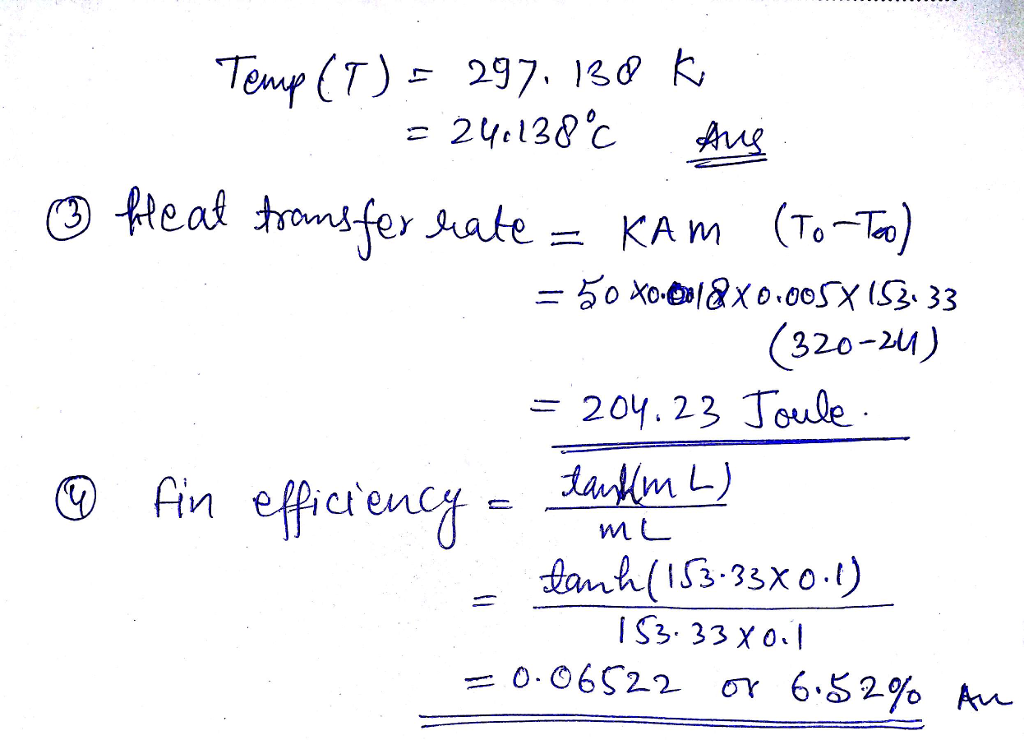 Temp (T) = 297.138 K
= 24.138°C Ans
③ Heat transfer rate = KAm (T₀-T∞)
= 50 x0.0018x0.005x153.33
(320-24)
= 204.23 Joule.
④ fin efficiency = tanh(mL)
mL
= tanh(153.33x0.1)
153.33x0.1
= 0.06522 or 6.52% An